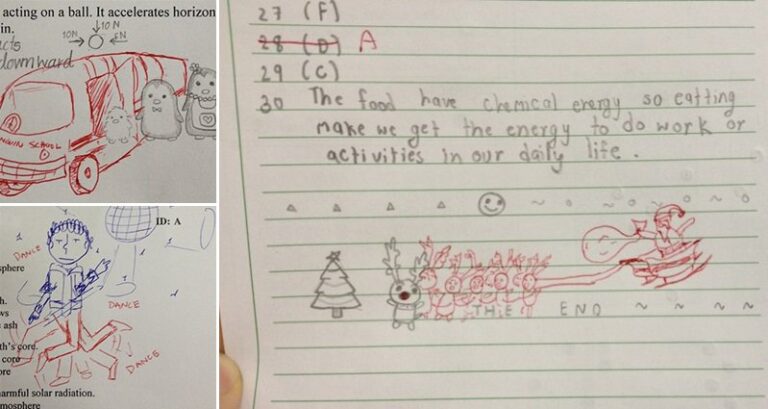 acting on a ball. It accelerates horizon
in.
10N
10N
5N
acts
downward
PENGUIN SCHOOL
ID: A
DANCE
sphere
DANCE
h.
ws
ash
th's core.
core
ore
DANCE
armful solar radiation.
mosphere
27 (F)
28 (D) A
29 (C)
30 The food have chemical energy so eatting
make we get the energy to do work or
activities in our daily life.
THE END